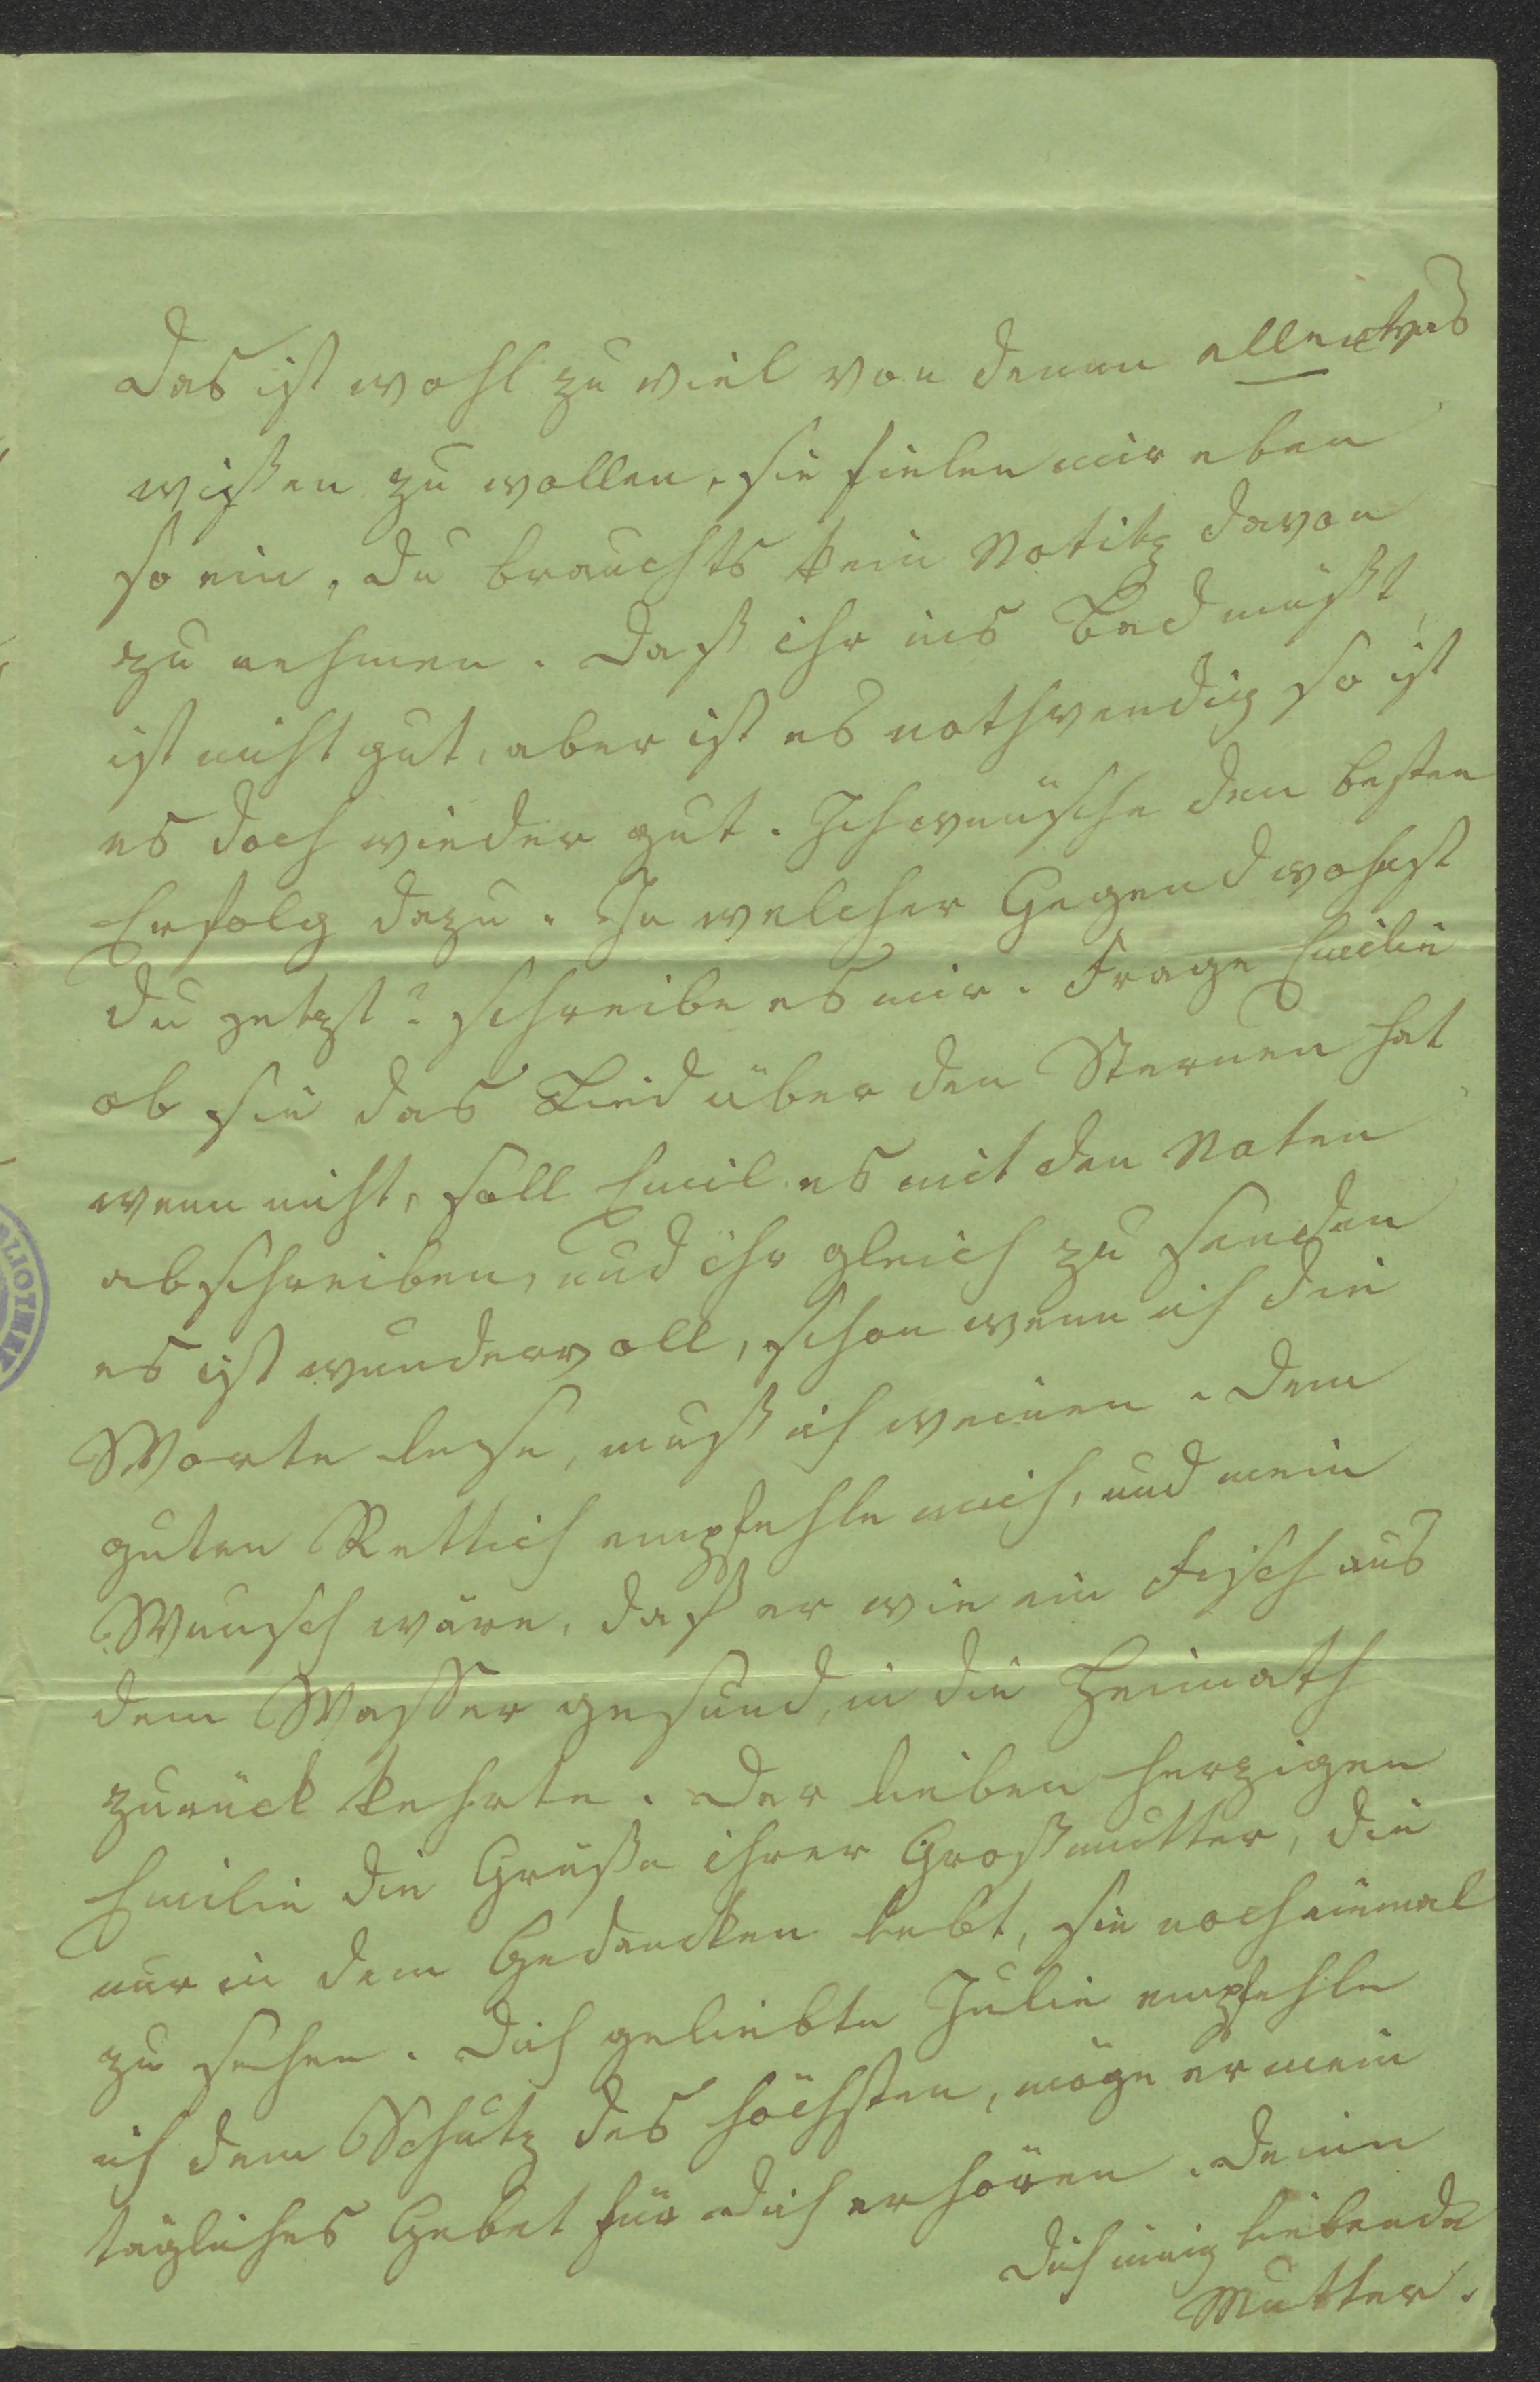 das ist wohl zu viel von denen allen etwas
wißen zu wollen, sie fielen mir eben
so ein, du brauchts kein Notitz davon
zu nehmen. Daß ihr ins Bad müßt,
ist nicht gut, aber ist es nothwendig so ist
es doch wieder gut. Ich wünsche den besten
Erfolg dazu. In welcher Gegend wohnst
du jetzt? schreibe es mir. Frage Emilie
ob sie das Lied über den Sternen hat
wenn nicht, soll Emil es mit den Noten
abschreiben, und ihr gleich zu senden
es ist wundervoll, schon wenn ich die
Worte lese, muß ich weinen. Dem
guten Rettich empfehle mich, und mein
Wunsch wäre, daß er wie ein Fisch aus
dem Wasser gesund, in die Heimath
zurück kehrte. Der lieben herzigen
Emilie die Grüße ihrer Großmutter, die
nur in dem Gedancken lebt, sie noch einmal
zu sehen. Dich geliebte Julie empfehle
ich dem Schutz des höchsten, möge er mein
tägliches Gebet für dich erhören. Deine
dich innig liebende
Mutter.